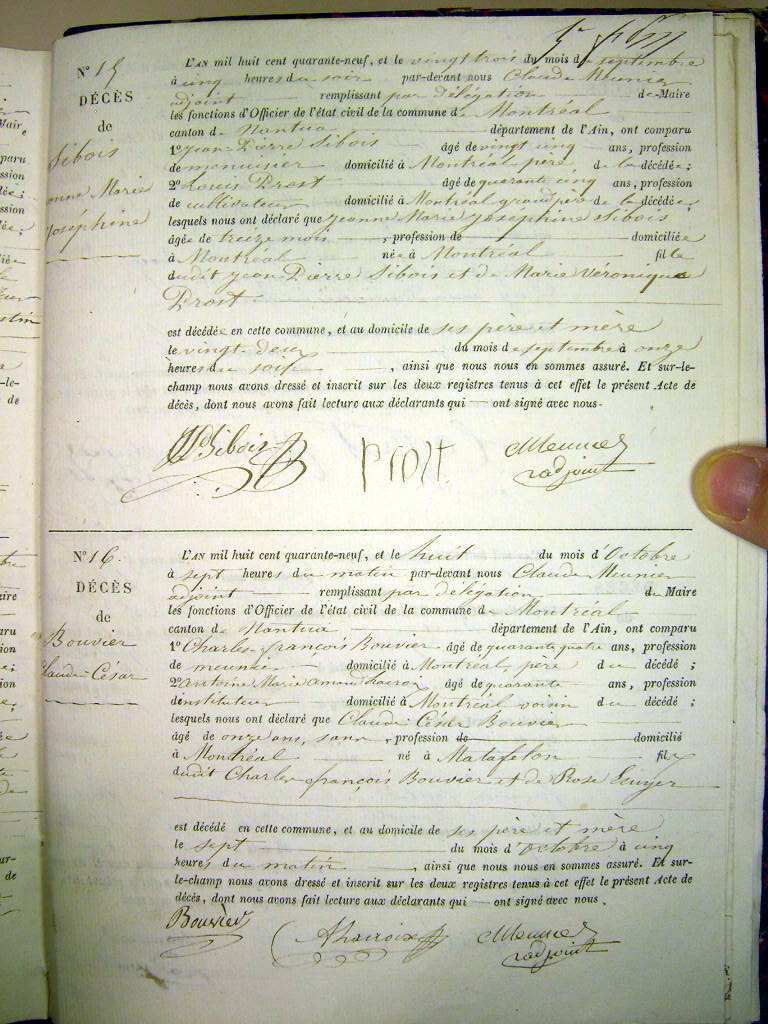 N° 15
DÉCÈS
de
Sibois
Jeanne Marie
Joséphine
L'AN mil huit cent quarante-neuf, et le vingt trois du mois de septembre
à cinq heures du soir par-devant nous Claude Meunier
adjoint remplissant par délégation de Maire
les fonctions d'Officier de l'état civil de la commune de Montréal
canton de Nantua département de l'Ain, ont comparu
1° Jean Pierre Sibois âgé de vingt cinq ans, profession
de menuisier domicilié à Montréal père de la décédée ;
2° Louis Prost âgé de quarante cinq ans, profession
de cultivateur domicilié à Montréal grand père de la décédée ;
lesquels nous ont déclaré que Jeanne Marie Joséphine Sibois
âgée de treize mois , profession de domiciliée
à Montréal née à Montréal fille
dudit Jean Pierre Sibois et de Marie Véronique
Prost
est décédée en cette commune, et au domicile de ses père et mère
le vingt-deux du mois de septembre à onze
heures du soir , ainsi que nous nous en sommes assuré. Et sur-le-
champ nous avons dressé et inscrit sur les deux registres tenus à cet effet le présent Acte de
décès, dont nous avons fait lecture aux déclarants qui ont signé avec nous.
Sibois Prost CMeunier
adjoint
N° 16.
DÉCÈS
de
Bouvier
Claude César
L'AN mil huit cent quarante-neuf, et le huit du mois d'Octobre
à sept heures du matin par-devant nous Claude Meunier
adjoint remplissant par délégation de Maire
les fonctions d'Officier de l'état civil de la commune de Montréal
canton de Nantua département de l'Ain, ont comparu
1° Charles françois Bouvier âgé de quarante quatre ans, profession
de meunier domicilié à Montréal, père du décédé ;
2° Antoine Marie âgé de quarante ans, profession
d'instituteur domicilié à Montréal voisin du décédé ;
lesquels nous ont déclaré que Claude César Bouvier
âgé de onze ans, sans , profession de domicilié
à Montréal né à Matafelon fils
dudit Charles françois Bouvier et de Rose
est décédé en cette commune, et au domicile de ses père et mère
le sept du mois d'Octobre à cinq
heures du matin , ainsi que nous nous en sommes assuré. Et sur-
le-champ nous avons dressé et inscrit sur les deux registres tenus à cet effet le présent Acte de
décès, dont nous avons fait lecture aux déclarants qui ont signé avec nous.
Bouvier CMeunier
adjoint